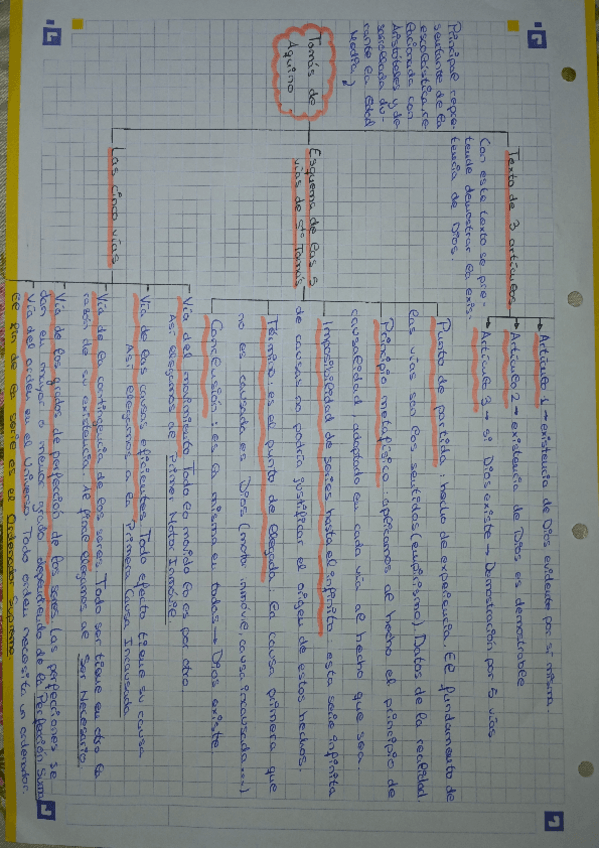 Tomás de
Aquino
Principal repre-
sentante de la
escolástica, re-
lacionada con
Aristóteles y de-
sarrollada du-
rante la Edad
Media
Texto de 3 artículos
Con este texto se pre-
tende demostrar la exis-
tencia de Dios.
Artículo 1 → existencia de Dios evidente por sí misma.
Artículo 2 → existencia de Dios es demostrable
Artículo 3 → si Dios existe → Demostración por 5 vías.
Esquema de las 5
vías de Sto Tomás
Punto de partida: hecho de experiencia. El fundamento de
las vías son los sentidos (empirismo). Datos de la realidad.
Principio metafísico: aplicamos al hecho el principio de
causalidad adaptado en cada vía al hecho que sea.
Imposibilidad de series hasta el infinito: esta serie infinita
de causas no podría justificar el origen de estos hechos.
Término: es el punto de llegada: la causa primera que
no es causada es Dios (motor inmóvil, causa incausada...)
Conclusión: es la misma en todas → Dios existe.
Las cinco vías
Vía del movimiento Todo lo movido lo es por otro
Así llegamos de Primer Motor Inmóvil
Vía de las causas eficientes Todo efecto tiene su causa
Así llegamos a la Primera Causa Incausada
Vía de la contingencia de los seres Todo ser tiene en otro la
razón de su existencia. Al final llegamos al Ser Necesario.
Vía de los grados de perfección de los seres Las perfecciones se
dan en mayor o menor grado dependiendo de la Perfección Sum
Vía del orden en el Universo Todo orden necesita un ordenador.
El fin de la serie es el Ordenador Supremo